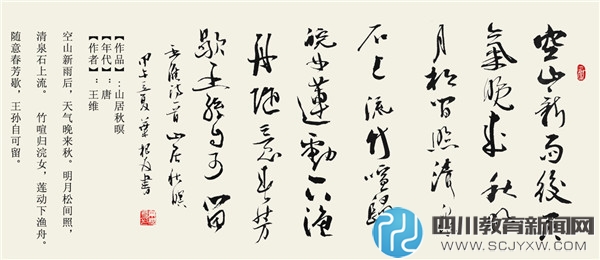 空山新雨後天
氣晚来秋明
月松間照清泉
石上流竹喧歸
浣女蓮動下漁
舟随意春芳
歇王孫自可留
王維詩一首山居秋暝
甲午夏葉根友書
【作品】：山居秋暝
【年代】：唐
【作者】：王维
空山新雨后，天气晚来秋。明月松间照，
清泉石上流。 竹喧归浣女，莲动下渔舟。
随意春芳歇，王孙自可留。
四川教育新闻网
WWW.SCJYXW.COM